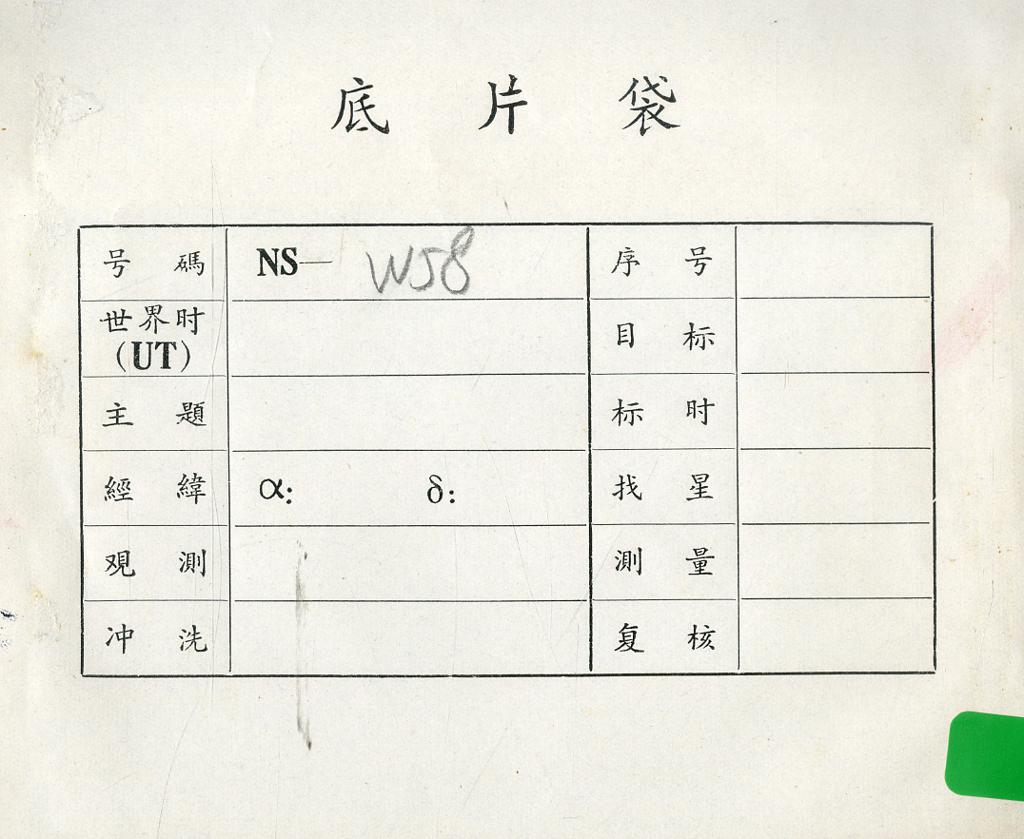 底片袋
号碼 NS— W58 序号
世界时(UT) 目标
主題 标时
經緯 α: δ: 找星
观測 測量
冲洗 复核